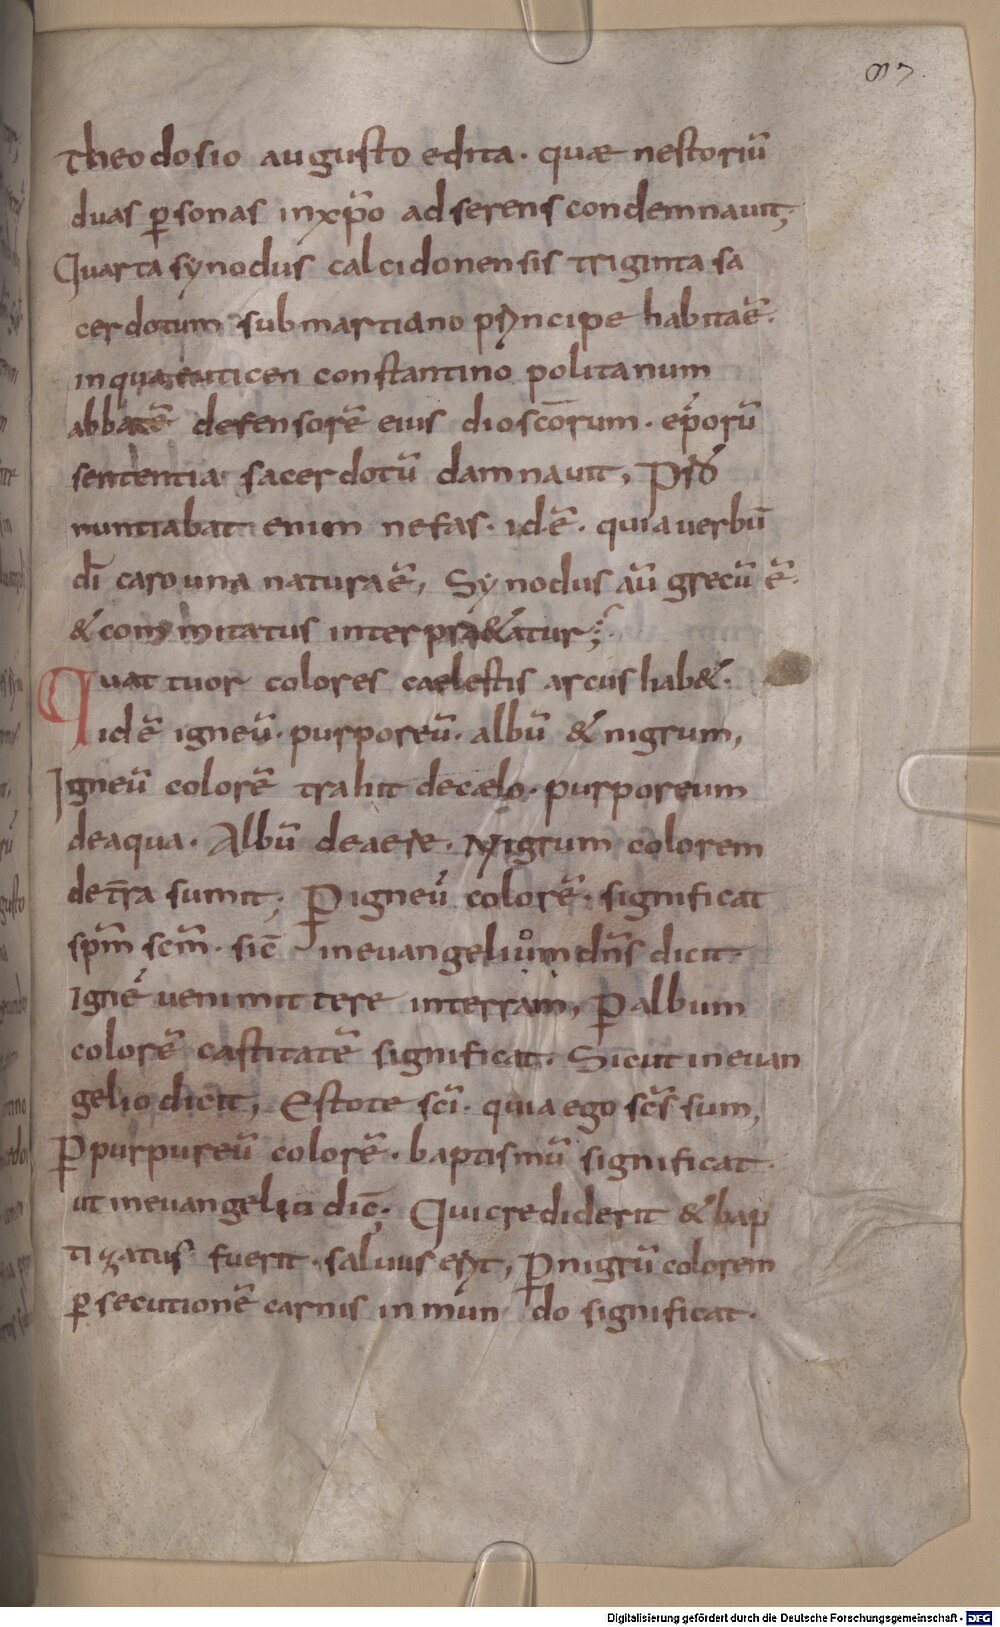 97.
theodosio augusto edita· quae nestoriū
duas ꝑsonas inxp̄o adserens condemnauit;
Quarta synodus calcidonensis triginta sa
cerdotum sub martiano principe habitaē·
inqua euticen constantino politanum
abbatē defensorē eius dioscōrum· ep̄orū
sententia sacerdotū damnauit,
nuntiabat enim nefas· idē· quia uerbū
dī caro una naturaē, Synodus aū grecū ē·
& commitatus interpr&atur;
Quattuor colores caelestis arcus hab&·
idē igneū· purporeū· albū & nigrum,
Igneū colorē trahit decaelo· purporeum
deaqua· Albū deaere· Nigrum colorem
det̄ra sumit; Ꝑ igneū colorē· significat
sp̄m sc̄m· sic̄ ineuangelium dn̄s dicit·
Ignē ueni mittere interram, Ꝑ album
colorē castitatē significat· Sicut ineuan
gelio dicit, Estote sc̄i· quia ego sc̄s sum,
Ꝑ purpureū colorē· baptismū significat·
ut ineuangelio dic̄; Qui crediderit & bap
tizatus fuerit· saluus erit, Ꝑ nigrū colorem
ꝑsecutionē carnis in mundo significat·
Digitalisierung gefördert durch die Deutsche Forschungsgemeinschaft - DFG